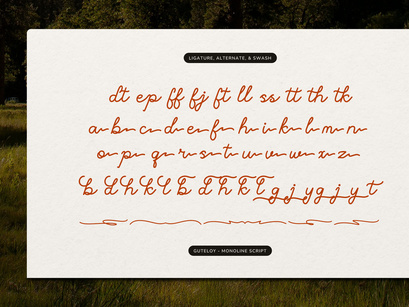 LIGATURE, ALTERNATE, & SWASH
dt ep ff fj ft ll ss tt th tk
a b c d e f h i k l m n
o p q r s t u v w x z
b d h k l b d h k l g j y g j y t
GUTELOY – MONOLINE SCRIPT